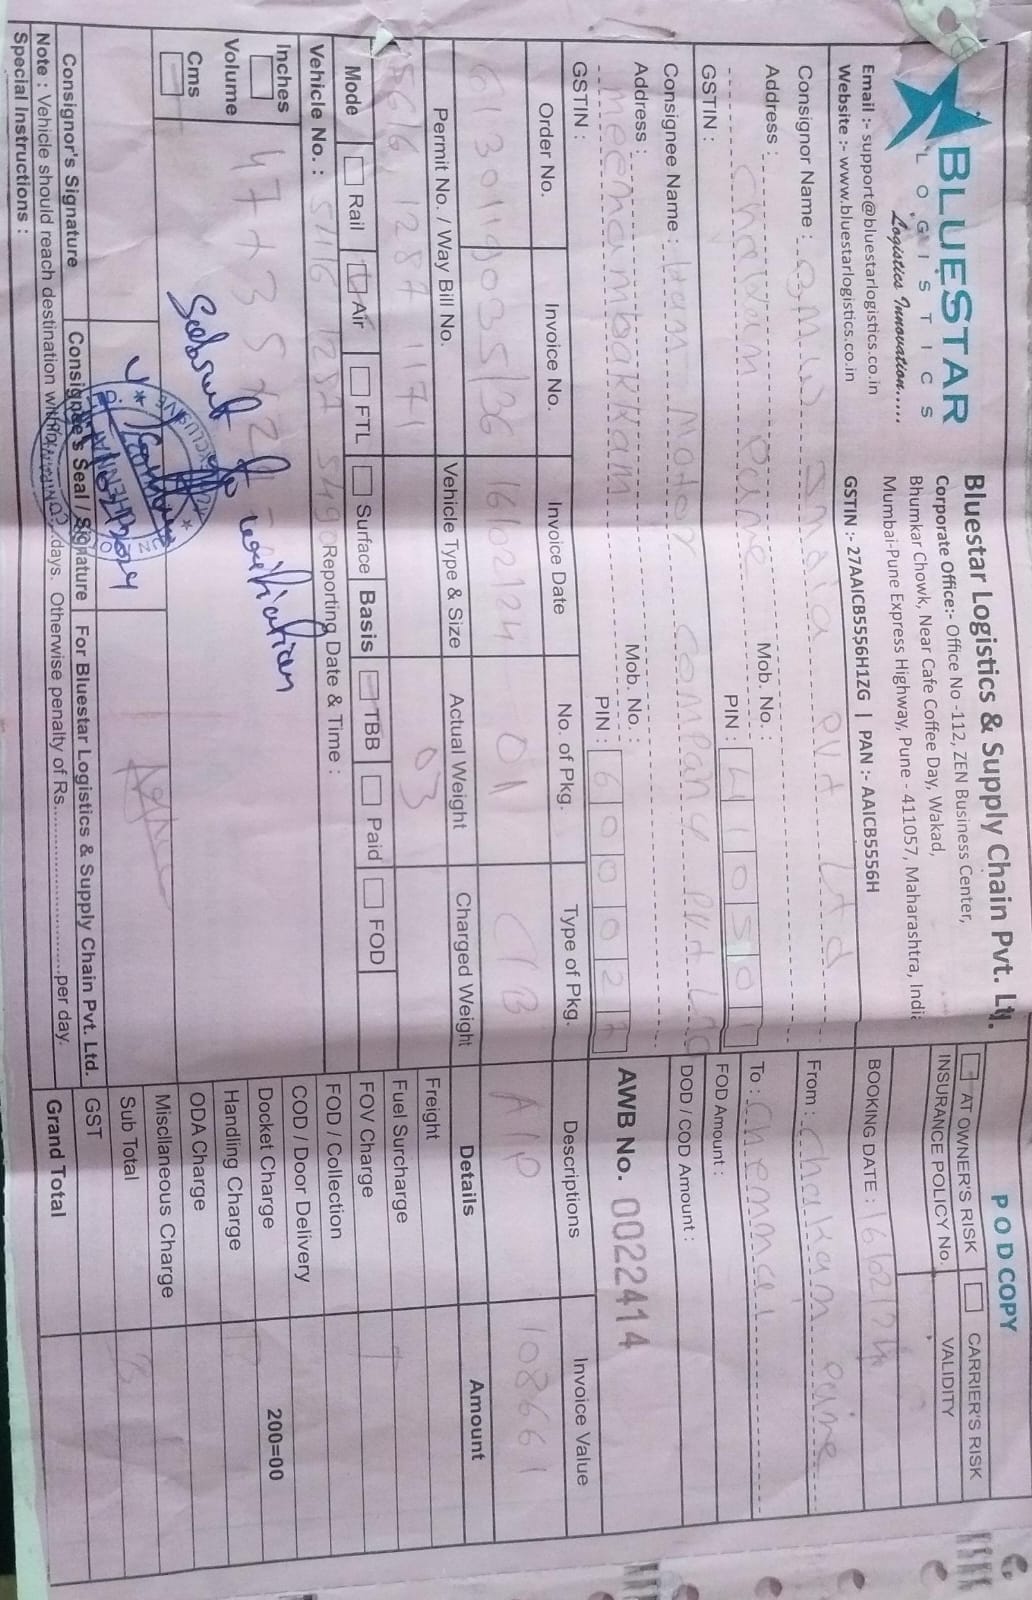 BLUESTAR
LOGISTICS
Logistics Innovation.....
Email :- support@bluestarlogistics.co.in
Website :- www.bluestarlogistics.co.in
Bluestar Logistics & Supply Chain Pvt. Ltd.
Corporate Office:- Office No -112, ZEN Business Center,
Bhumkar Chowk, Near Cafe Coffee Day, Wakad,
Mumbai-Pune Express Highway, Pune - 411057, Maharashtra, India
GSTIN :- 27AAICB5556H1ZG | PAN :- AAICB5556H
POD COPY
AT OWNER'S RISK CARRIER'S RISK
INSURANCE POLICY No. VALIDITY
BOOKING DATE : 16/02/24
From : Chakan Pune
To : Chennai
FOD Amount :
DOD / COD Amount :
AWB No. 0022414
Consignor Name : BMW India Pvt Ltd
Address :
Chakan Pune Mob. No. :
PIN : 410501
GSTIN :
Consignee Name : Kun Motor Company Pvt Ltd
Address :
meenambakkam Mob. No. :
PIN : 600027
GSTIN :
Order No. Invoice No. Invoice Date No. of Pkg. Type of Pkg. Descriptions Invoice Value
6130119035/36 16/02/24 01 C/B A/P 108661
Permit No. / Way Bill No. Vehicle Type & Size Actual Weight Charged Weight Details Amount
1287 1171 03
Freight
Fuel Surcharge
FOV Charge
FOD / Collection
COD / Door Delivery
Docket Charge 200=00
Handling Charge
ODA Charge
Miscllaneous Charge
Sub Total
GST
Grand Total
Mode Rail Air FTL Surface Basis TBB Paid FOD
Vehicle No. : 5416 1287 5490 Reporting Date & Time :
Inches
Volume
Cms
47 x 35 x
to
Consignor's Signature Consignee's Seal / Signature For Bluestar Logistics & Supply Chain Pvt. Ltd.
Note : Vehicle should reach destination within days. Otherwise penalty of Rs............................per day.
Special Instructions :